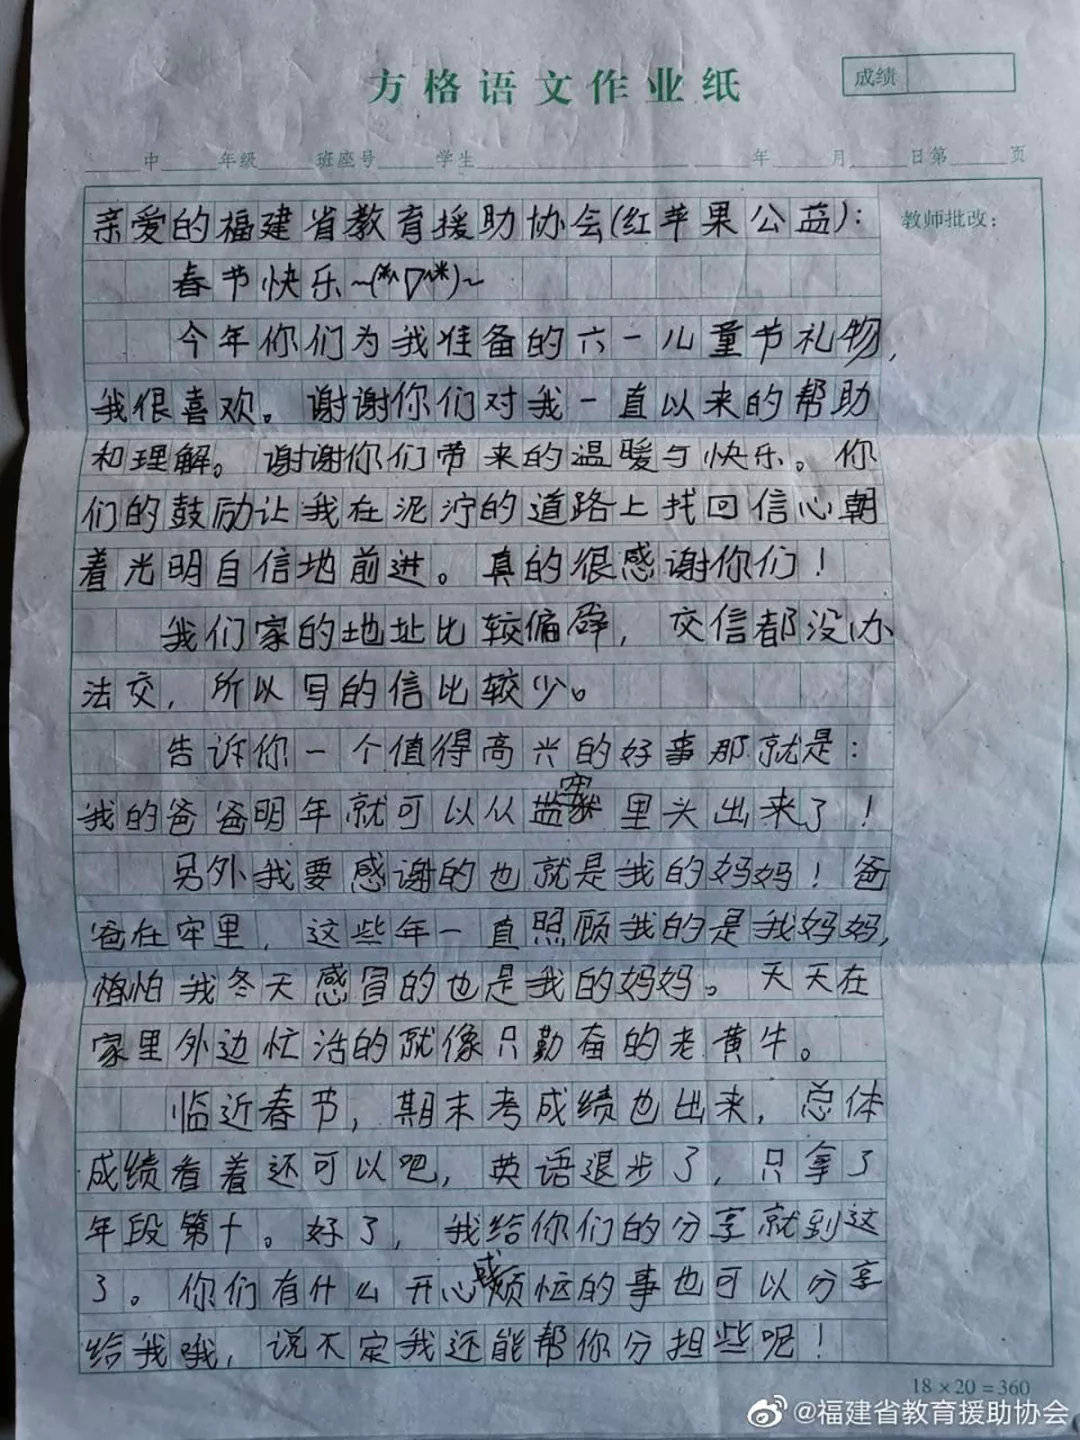 方格语文作业纸
成绩
中 年级 班座号 学生 年 月 日第 页
教师批改：
亲爱的福建省教育援助协会(红苹果公益)：
春节快乐~(*^▽^*)~
今年你们为我准备的六一儿童节礼物，
我很喜欢。谢谢你们对我一直以来的帮助
和理解。谢谢你们带来的温暖与快乐。你
们的鼓励让我在泥泞的道路上找回信心朝
着光明自信地前进。真的很感谢你们！
我们家的地址比较偏僻，交信都没办
法交，所以写的信比较少。
告诉你一个值得高兴的好事那就是：
我的爸爸明年就可以从监牢里头出来了！
另外我要感谢的也就是我的妈妈！爸
爸在牢里，这些年一直照顾我的是我妈妈，
怕我冬天感冒的也是我的妈妈。天天在
家里外边忙活的就像只勤奋的老黄牛。
临近春节，期末考成绩也出来，总体
成绩看着还可以吧，英语退步了，只拿了
年段第十。好了，我给你们的分享就到这
了。你们有什么开心或烦恼的事也可以分享
给我哦，说不定我还能帮你分担些呢！
18×20=360
@福建省教育援助协会